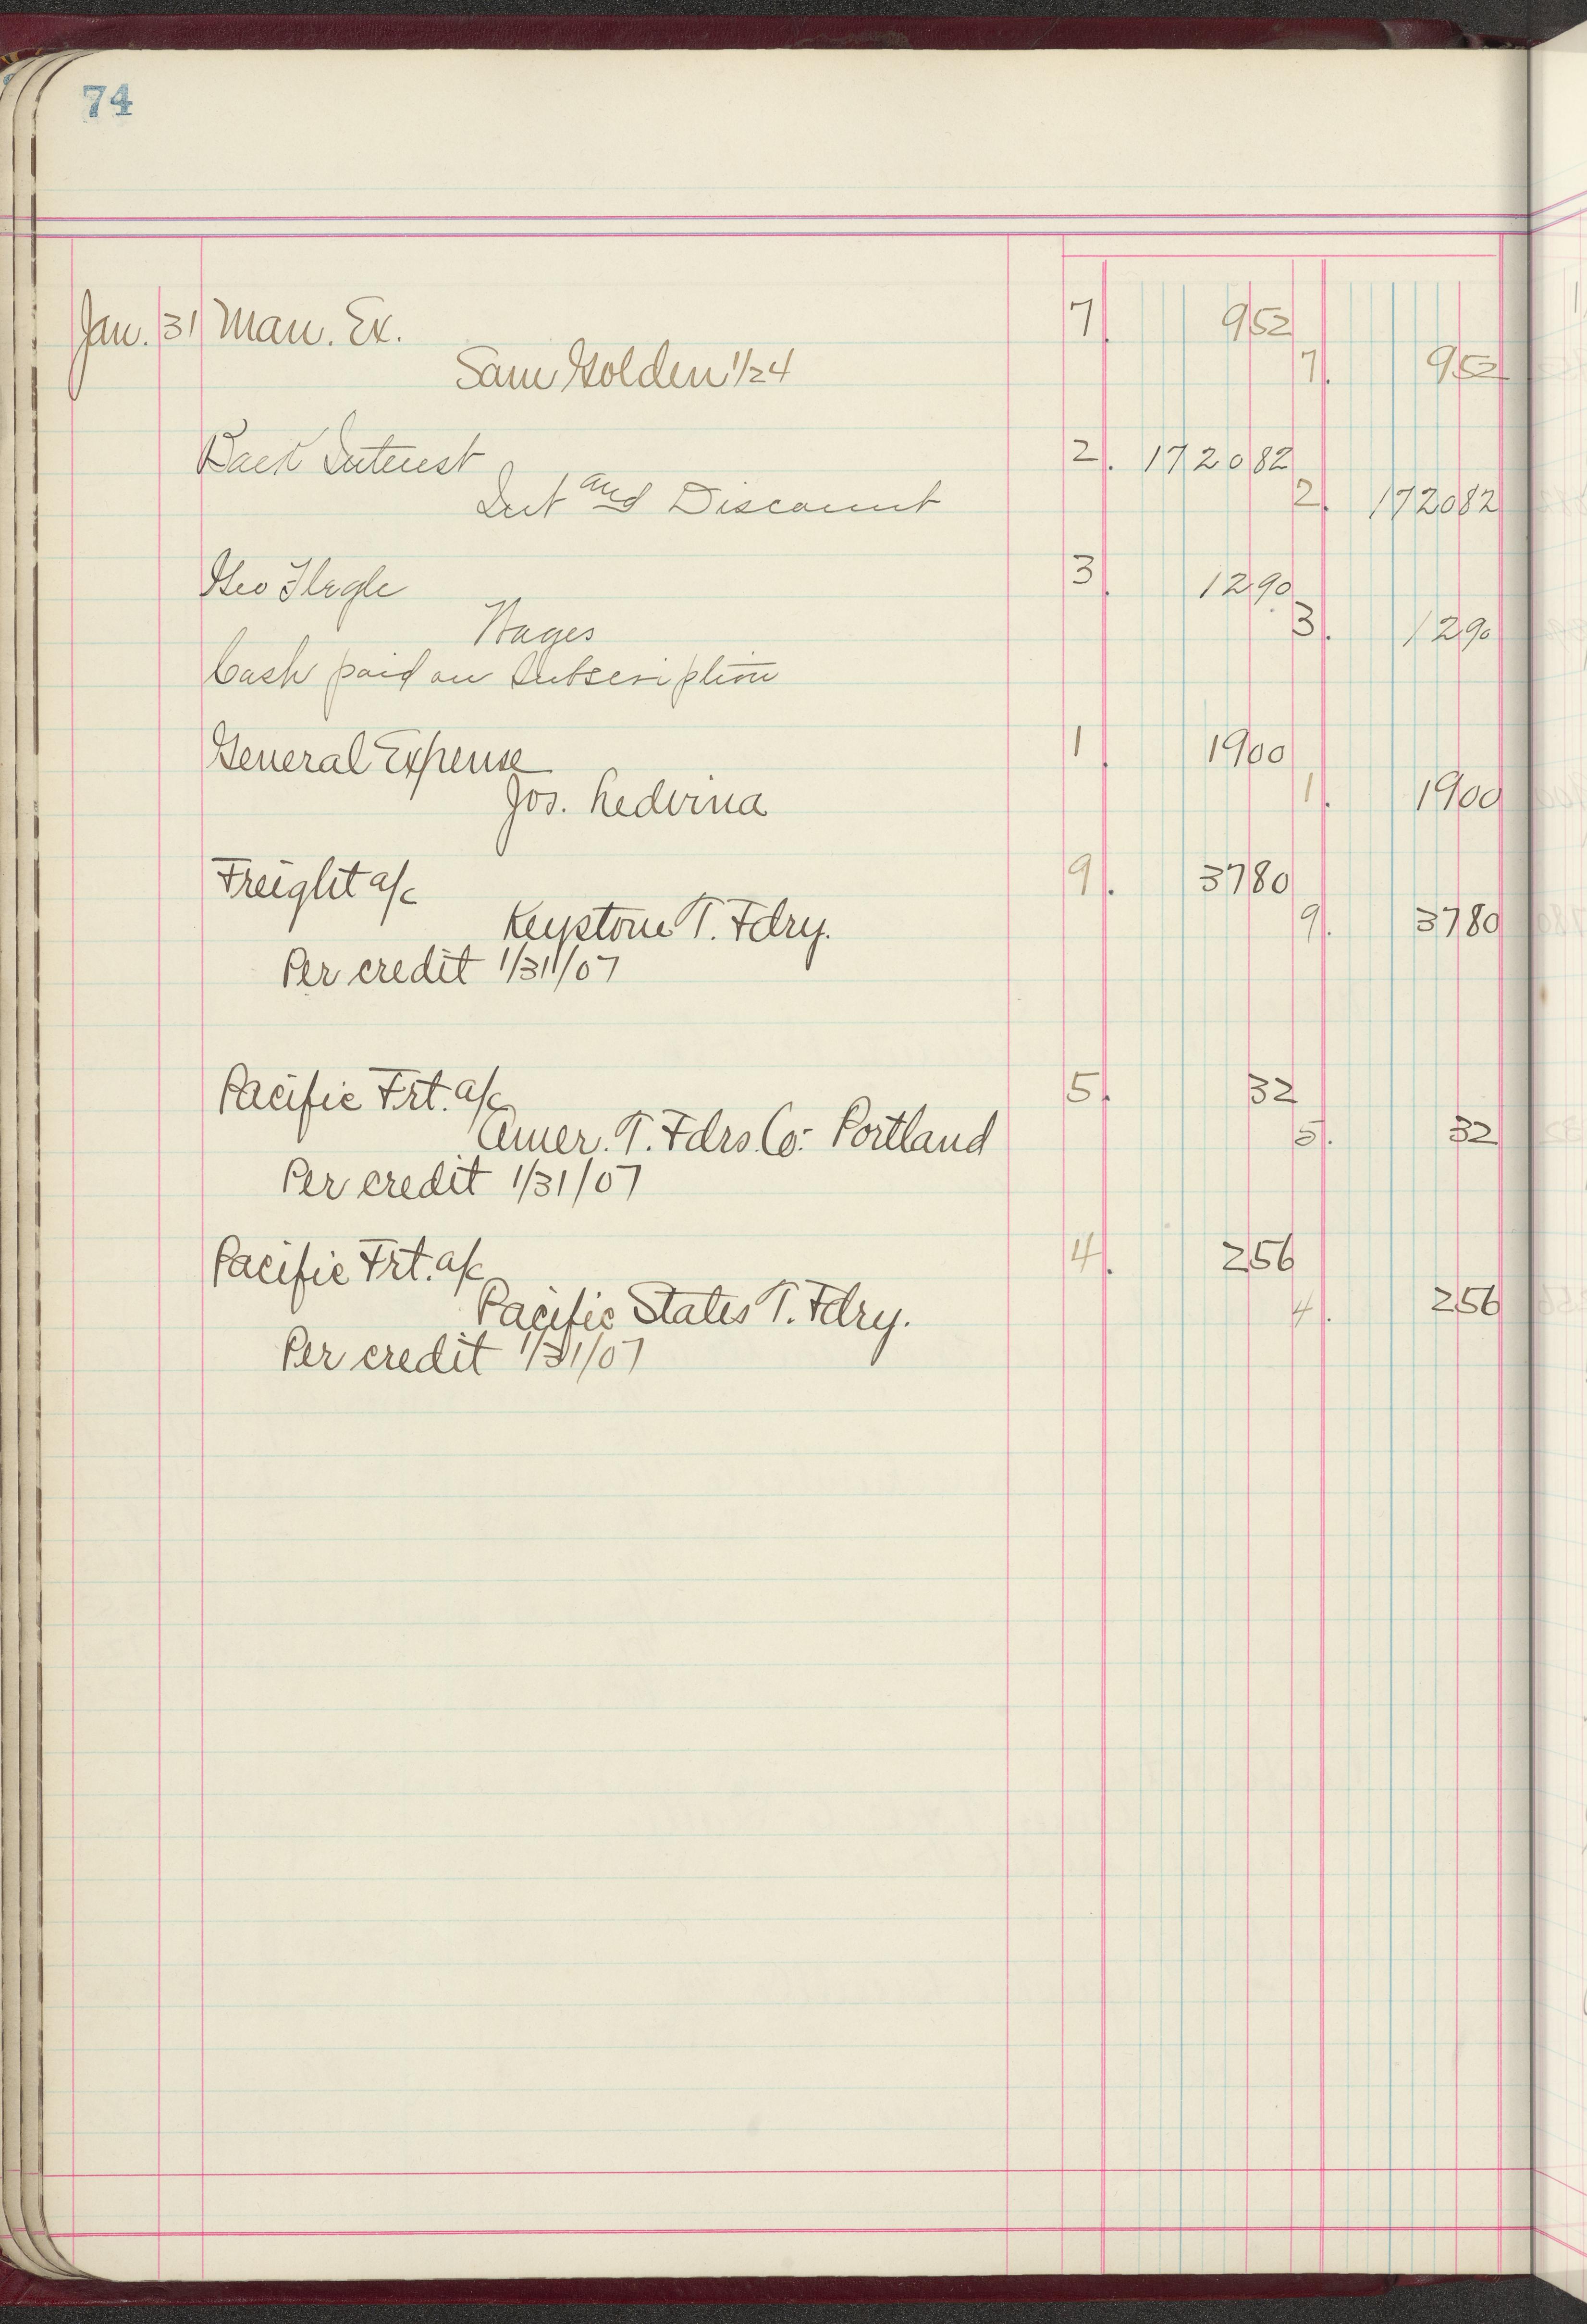 74
Jan. 31 Man. Ex. 7. 952
Sam Golden 1/24 7. 952
Back Interest 2. 172082
Int and Discount 2. 172082
Geo 3. 1290
Wages 3. 1290
Cash paid on Subscription
General Expense 1. 1900
Jos. 1. 1900
Freight a/c 9. 3780
Keystone T. Fdry. 9. 3780
Per credit 1/31/07
Pacific Frt. a/c 5. 32
Amer. T. Fdrs. Co:- Portland 5. 32
Per credit 1/31/07
Pacific Frt. a/c 4. 256
Pacific States T. Fdry. 4. 256
Per credit 1/31/07